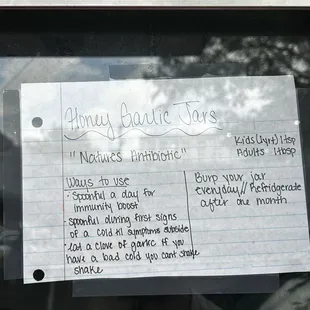 Honey Garlic Jars
Kids (1yr+) 1tsp
Adults 1tbsp
"Natures Antibiotic"
Ways to use
· Spoonful a day for
immunity boost
· Spoonful during first signs
of a cold til symptoms subside
· Eat a clove of garlic if you
have a bad cold you cant shake
shake
Burp your jar
everyday // Refridgerade
after one month